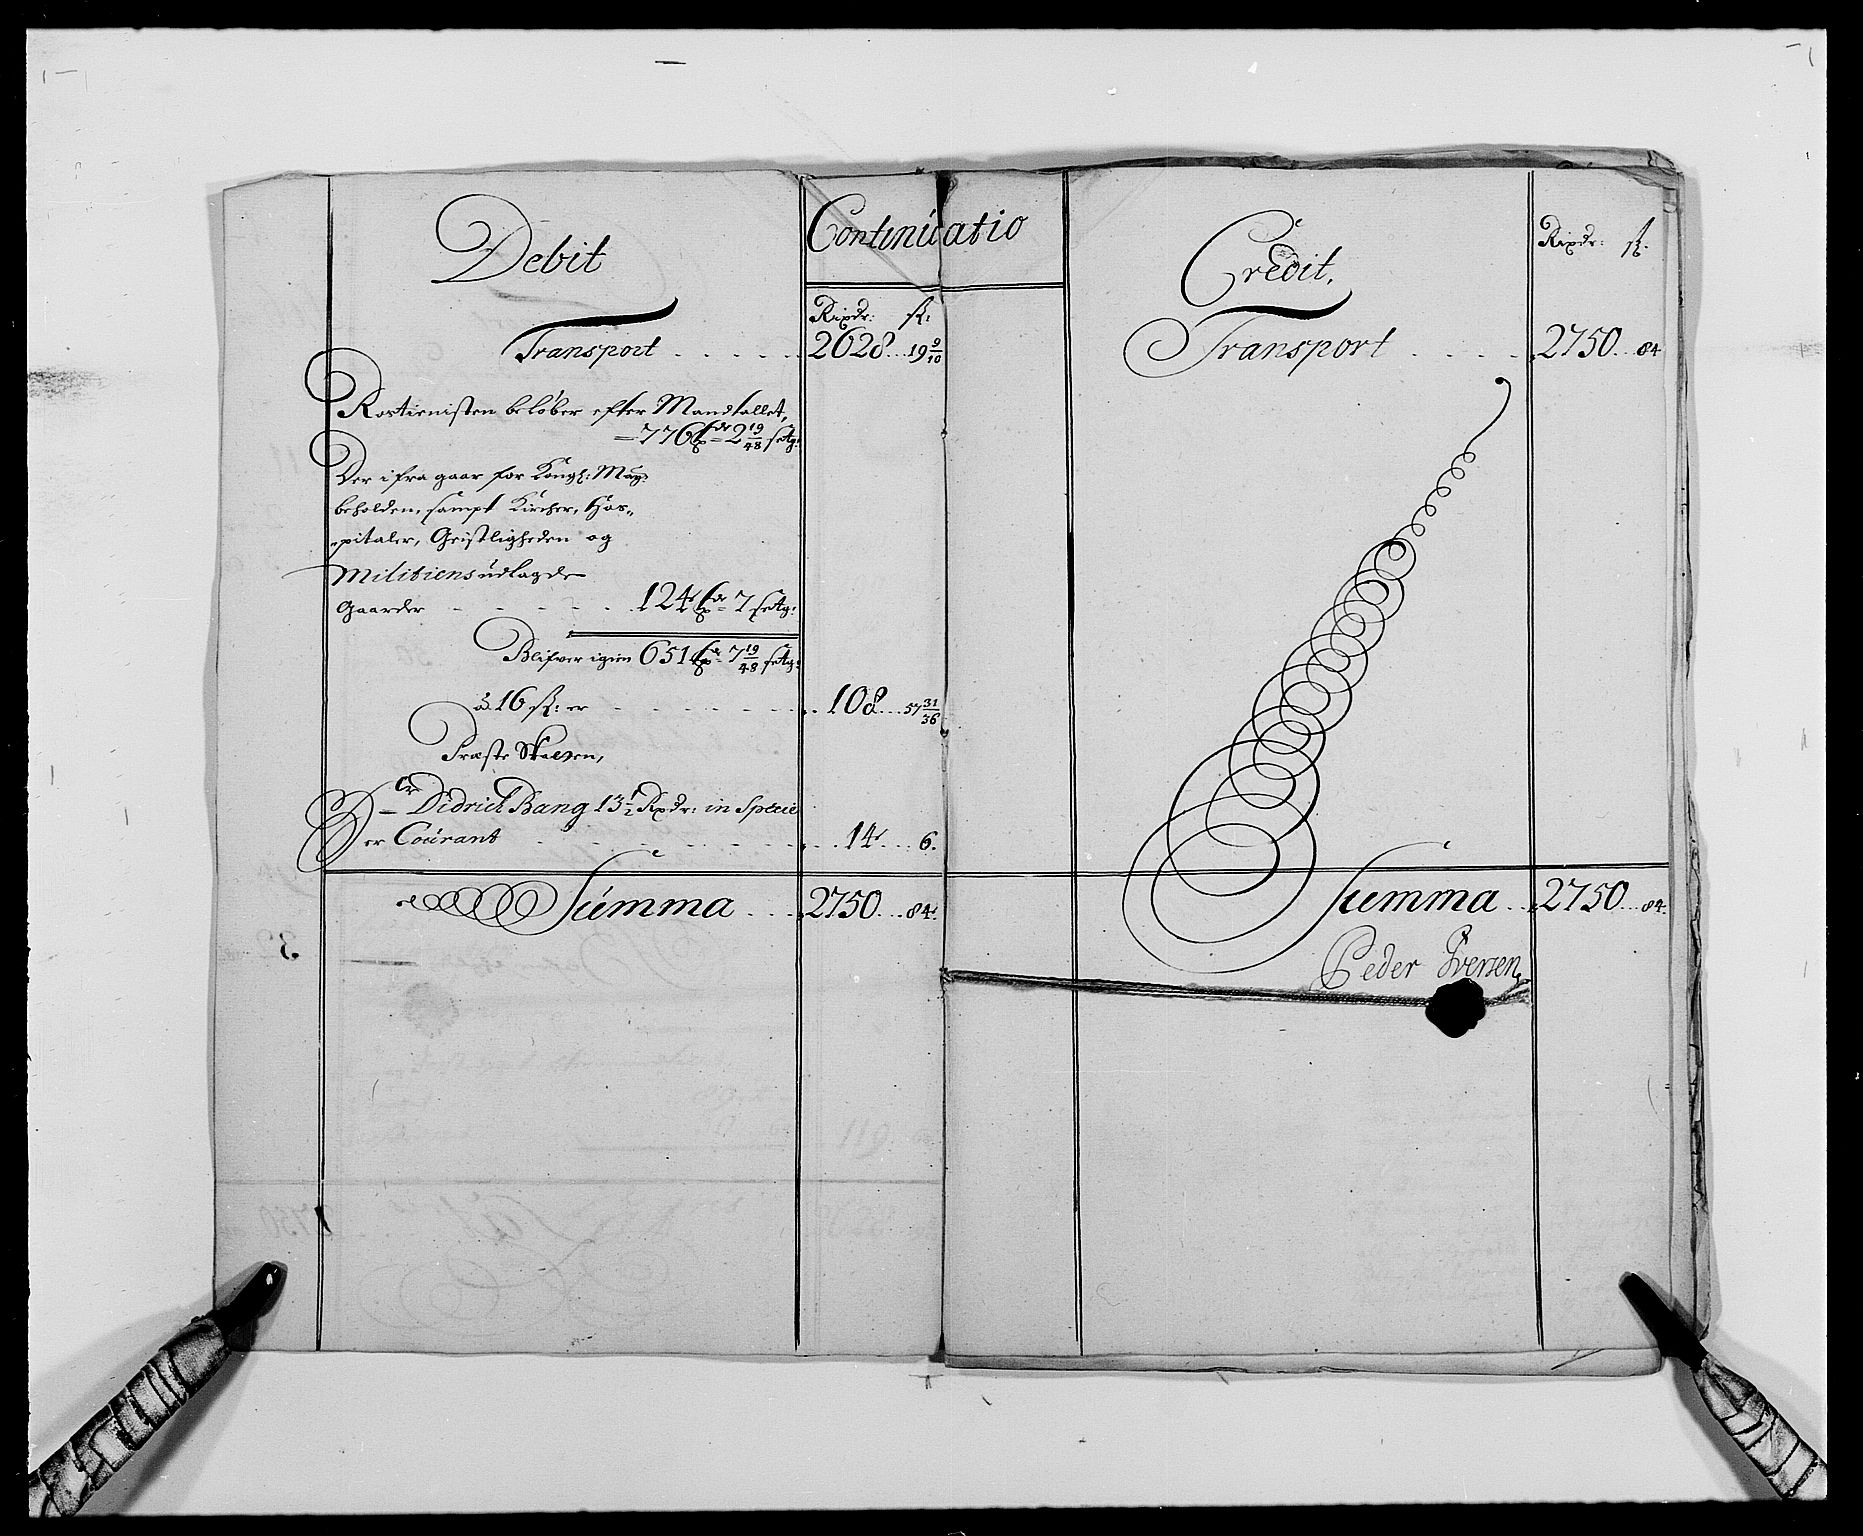 Debit
Continuatio
Rixdr: sk:
Transport . . . . . 2628 . . 19 9/10
Rostienisten beløber efter Mandtallet,
=776 2 19/48 setg:
Der ifra gaar for Kongl: May:
beholden, sampt Kircher, Hos„
„pitaler, Geistligheden og
Militiens udlagde
Gaarder - - - - . . 124 7 setg:
Blifver igien 651 7 19/48 setg:
à 16 sk: er - - - - - - . . 108 . . 57 31/36
Præste Skatten,
Hr Didrich Bang 13 1/2 Rixdr: in Specie
er Courant . . . . . . . 14 . . . 6.
Summa . . . 2750 . . . 84.
Credit.
Rixdr: sk:
Transport . . . . . 2750 . . 84
Summa . . . 2750 . . . 84.
Peder Iversen